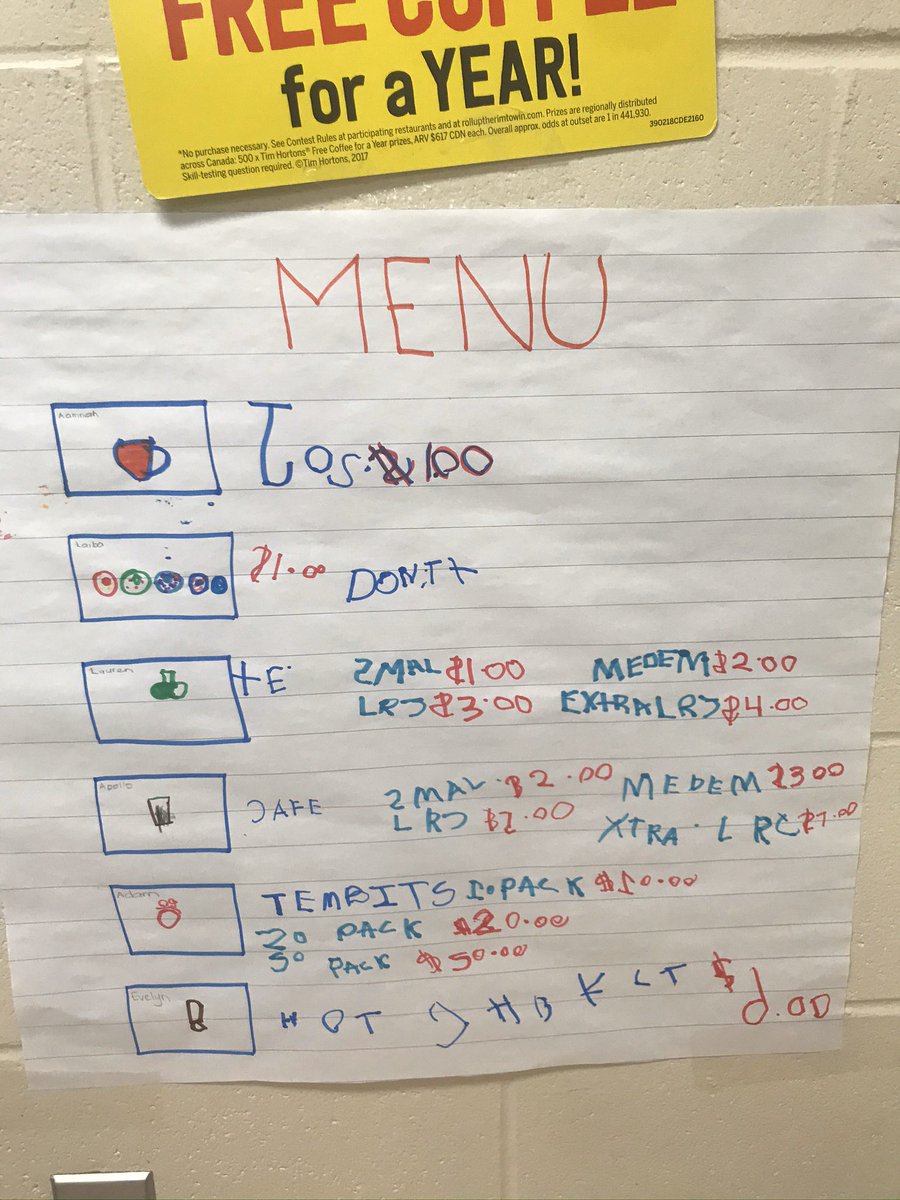 FREE COFFEE
for a YEAR!
*No purchase necessary. See Contest Rules at participating restaurants and at rolluptherimtowin.com. Prizes are regionally distributed
across Canada: 500 x Tim Hortons® Free Coffee for a Year prizes, ARV $617 CDN each. Overall approx. odds at outset are 1 in 441,930.
Skill-testing question required. ©Tim Hortons, 2017
390218CDE2160
MENU
Aamnah
JOS. $1.00
Laiba
$1.00 DON,T+
Lauren
tE 2MAL $1.00 MEDEM $2.00
LRJ $3.00 EXTRA LRJ $4.00
Apollo
JAFE 2MAL $2.00 MEDEM $3.00
LRJ XTRA LRC
Adam
TEMBITS 10 PACK $10.00
20 PACK $20.00
50 PACK $50.00
Evelyn
HOT JHBKLT $